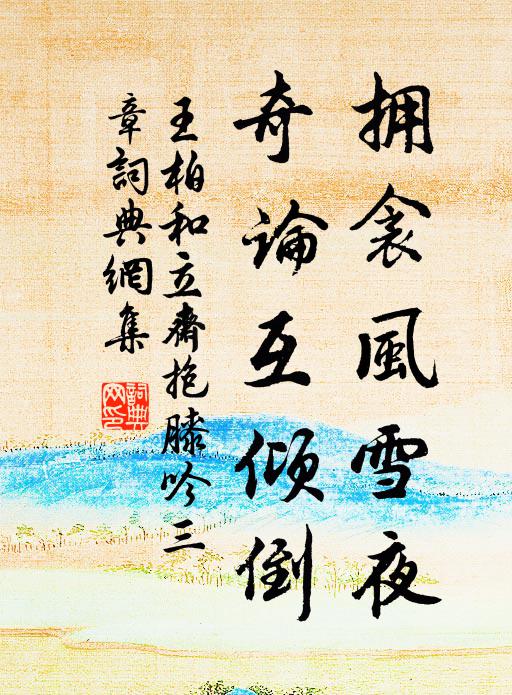 拥衾風雪夜
奇論互傾倒
王柏和立齋抱膝吟三
章詞典網集
詞典
网印